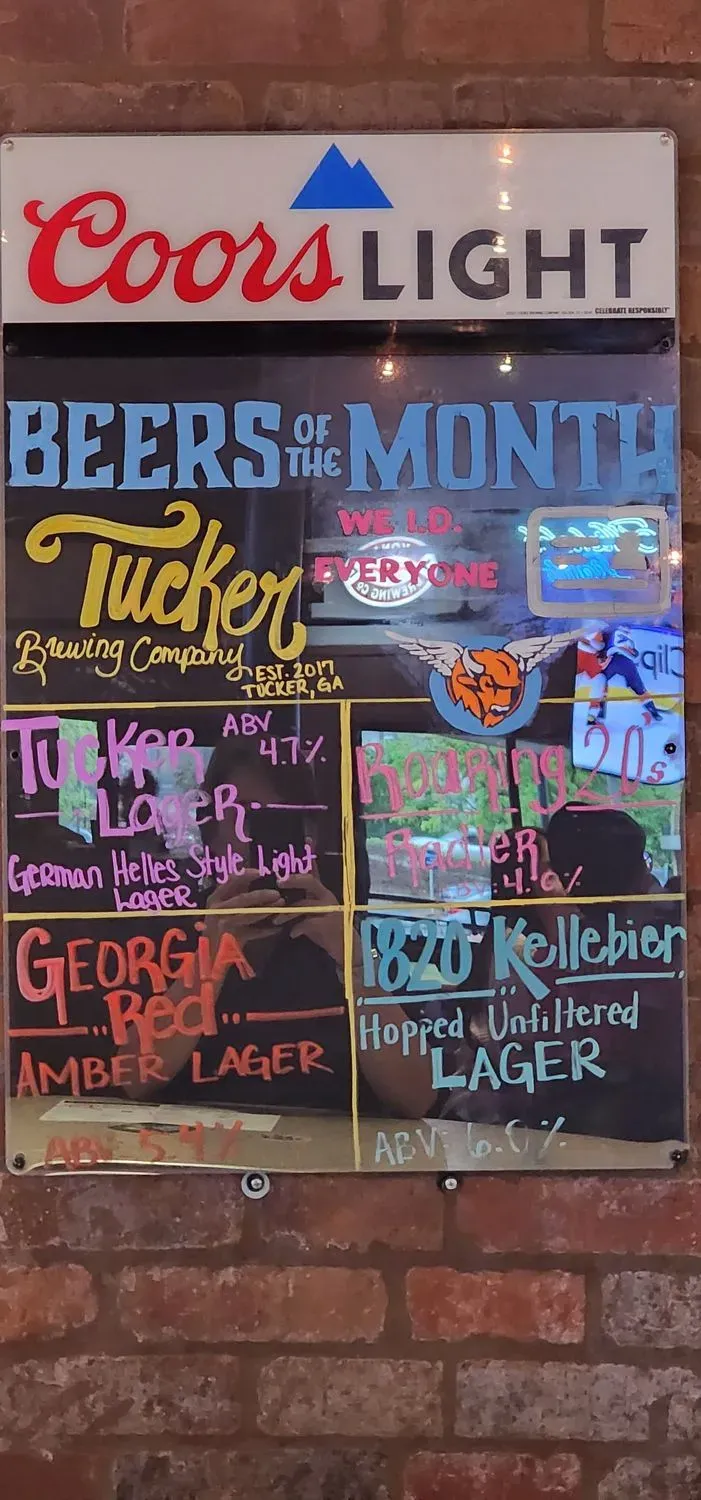 Coors LIGHT
CELEBRATE RESPONSIBLY
BEERS OF THE MONTH
Tucker
Brewing Company
EST. 2017
TUCKER, GA
WE I.D.
EVERYONE
TUCKER
ABV
4.7%
LAGER
GERMAN Helles Style Light
Lager
Roaring 20's
Radler
ABV: 4.0%
GEORGIA
Red
AMBER LAGER
ABV 5.4%
1820 Kellebier
Hopped Unfiltered
LAGER
ABV: 6.0%